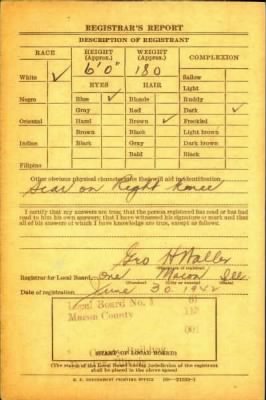 REGISTRAR'S REPORT
DESCRIPTION OF REGISTRANT
RACE HEIGHT (Approx.) WEIGHT (Approx.) COMPLEXION
White ✓ 6'0" 180 Sallow
EYES HAIR Light
Negro Blue ✓ Blonde Ruddy
Gray Red Dark ✓
Oriental Hazel Brown ✓ Freckled
Brown Black Light brown
Indian Black Gray Dark brown
Bald Black
Filipino
Other obvious physical characteristics that will aid in identification
Scar on Right Knee
I certify that my answers are true; that the person registered has read or has had
read to him his own answers; that I have witnessed his signature or mark and that
all of his answers of which I have knowledge are true, except as follows:
Geo H Waller
(Signature of registrar)
Registrar for Local Board One Macon Ill.
(Number) (City or county) (State)
Date of registration June 30 1942
Local Board No. 1 61
Macon County 115
001
Building
(STAMP OF LOCAL BOARD)
(The stamp of the Local Board having jurisdiction of the registrant
shall be placed in the above space)
U. S. GOVERNMENT PRINTING OFFICE 16—21630-1